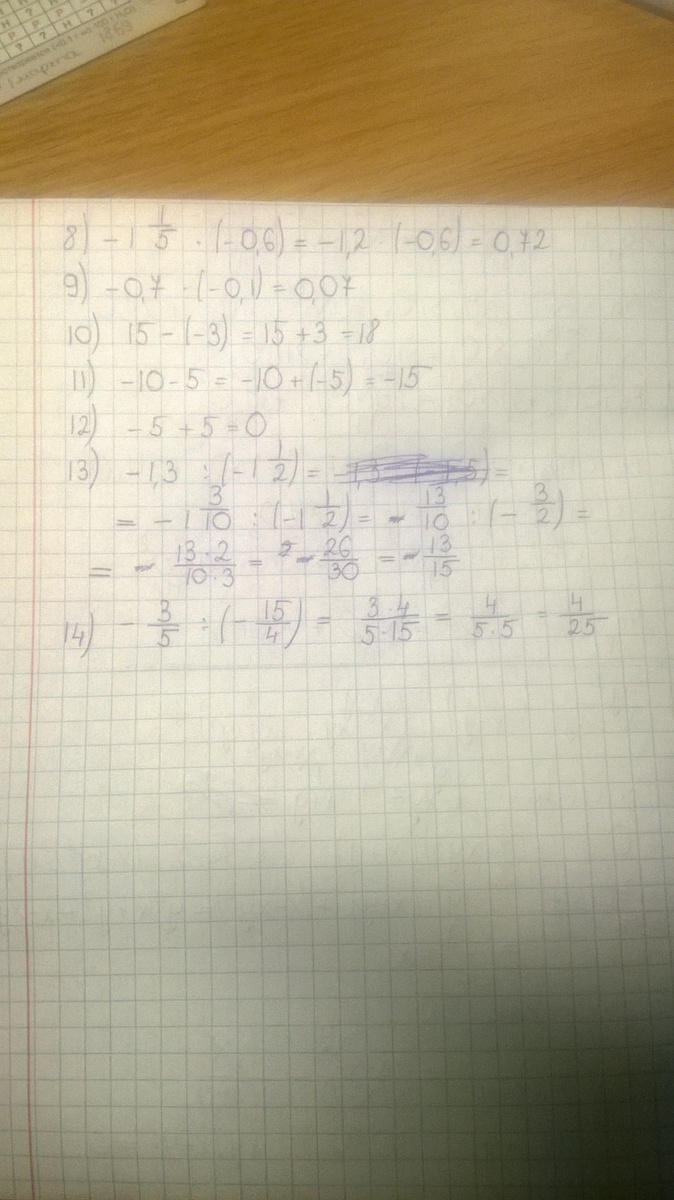 8) -1 1/5 · (-0,6) = -1,2 · (-0,6) = 0,72
9) -0,7 · (-0,1) = 0,07
10) 15 - (-3) = 15 + 3 = 18
11) -10 - 5 = -10 + (-5) = -15
12) -5 + 5 = 0
13) -1,3 : (-1 1/2) = =
= -1 3/10 : (-1 1/2) = -13/10 : (-3/2) =
= -13·2/10·3 = -26/30 = -13/15
14) -3/5 : (-15/4) = 3·4/5·15 = 4/5·5 = 4/25